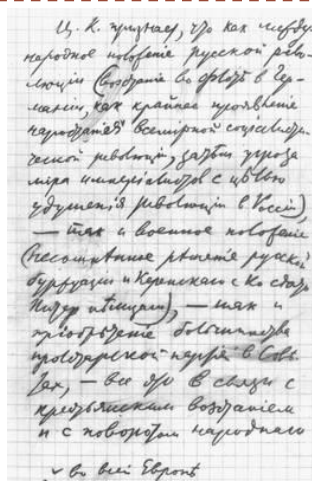 Ц. К. признает, что как между-
народное положение русской рево-
люции (возстание во флоте в Гер-
мании как крайнее проявление
наростания всемірной соціалисти-
ческой революции, затем угроза
мира имперіалистов с целью
удушенія революціи в Россіи),
— так и военное положеніе
(несомненное решеніе русской
буржуазіи и Керенскаго с Ко сдать
Питер немцам), — так и
пріобретеніе большинства
пролетарской партіей в Сове-
тах, — все это в связи с
крестьянским возстаніем
и с поворотом народнаго
v во всей Европе